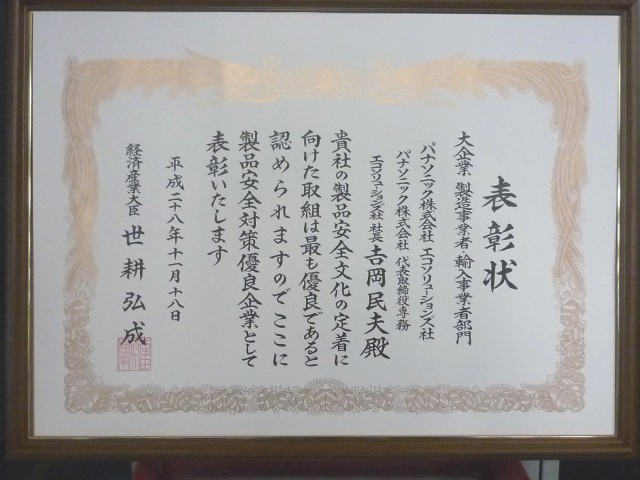 表彰状
大企業 製造事業者・輸入事業者部門
パナソニック株式会社 エコソリューションズ社
パナソニック株式会社 代表取締役専務
エコソリューションズ社 社長 吉岡民夫殿
貴社の製品安全文化の定着に
向けた取組は最も優良であると
認められますのでここに
製品安全対策優良企業として
表彰いたします
平成二十八年十一月十八日
経済産業大臣 世耕弘成